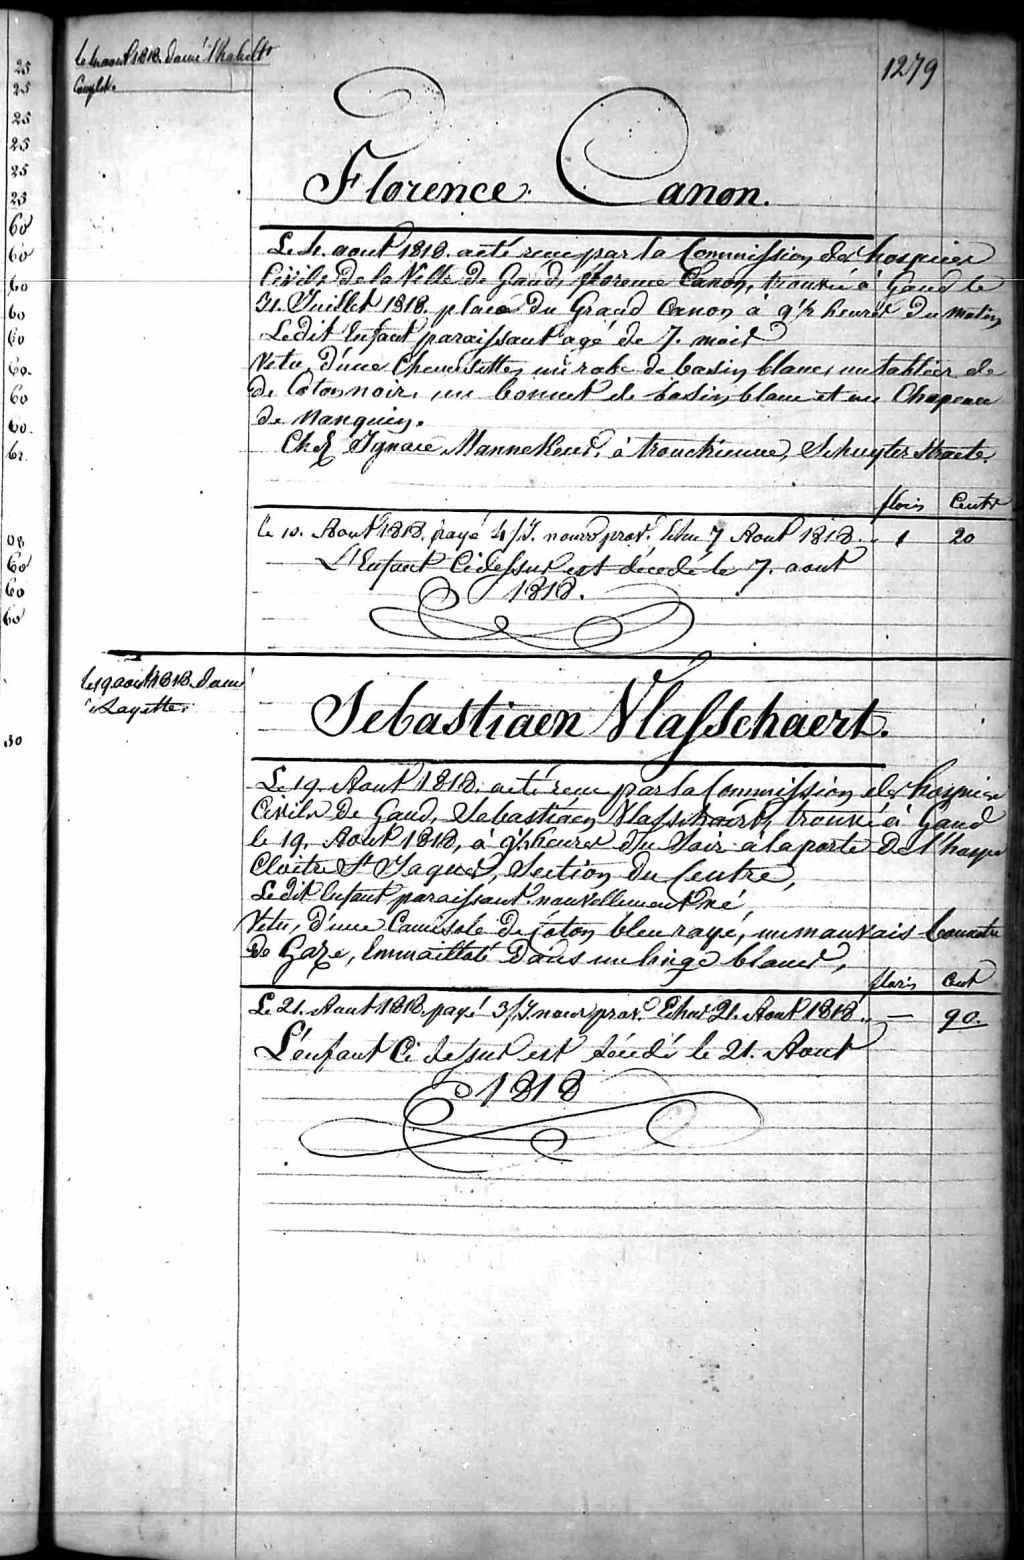 25
25
25
25
25
25
60
60
60
60
60
60
60
60
08
60
60
60
le 4 aout 1818. donné l'habillt
Complet.
1279
Florence Canon.
Le 4. aout 1818. a été recu par la Commission des hospices
Civils de la Ville de Gand, florence Canon, trouvée à Gand le
31. Juillet 1818. place du Grand Canon à 9 1/2 heures du matin,
Ledit Enfant paraissant agé de 7. mois
Vetu, d'une Chemisette, un robe de basin blanc, un tablier de
de Coton noir, un bonnet de basin blanc et un Chapeau
de Nanquin.
Chez Ignace Mannekens, à tronchienne, Schuyter Straete.
floris Cents
le 10. Aout 1818. payé 4/7. nourr prov. Echu 7 Aout 1818. 1 20
L'Enfant Cidessus est décédé le 7. aout
1818.
le 19 aout 1818 donné
la Layette.
Sebastiaen Vlasschaert.
Le 19. Aout 1818. a été recu par la Commission des hospices
Civils de Gand, Sebastiaen Vlasschaert, trouvé à Gand
le 19. Aout 1818, à 9 1/2 heures du Soir à la porte de l'hospice
Cloitre St Jaques, Section du Centre,
Ledit Enfant paraissant nouvellement né,
Vetu, d'une Camisole de Coton bleu rayé, un mauvais bonnet
de Gaze, Emmailloté dans un linge blanc,
floris Cent
Le 21. Aout 1818. payé 3/7. nour prov. Echu 21. Aout 1818. — 90.
L'enfant Ci dessus est décédé le 21. Aout
1818